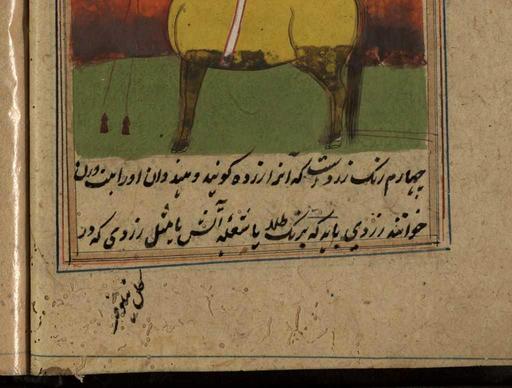 چهارم رنگ زردست که آنرا زرده کویند و هندوان اورا بیت ورن
خوانند زردی باید که برنک طلا یا شعله آتش یا مثل زردی که در
گل نیلوفر